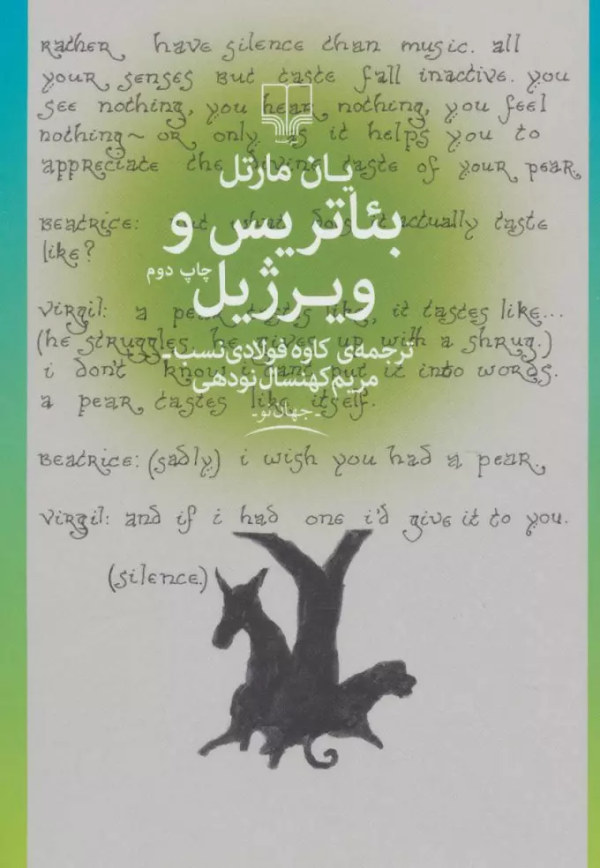 Rather have silence than music. all
your senses but taste fall inactive. you
see nothing, you hear nothing, you feel
nothing~ or only as it helps you to
appreciate the divine taste of your pear.
یان مارتل
Beatrice: but what does it actually taste
like?
بئاتریس و
ویرژیل
چاپ دوم
Virgil: a pear tastes like, it tastes like...
(he struggles. he gives up with a shrug.)
i don't know. i can't put it into words.
a pear tastes like itself.
ترجمه‌ی کاوه فولادی‌نسب ـ
مریم کهنسال نودهی
ـ جهان نو ـ
Beatrice: (sadly) i wish you had a pear.
Virgil: and if i had one i'd give it to you.
(silence.)